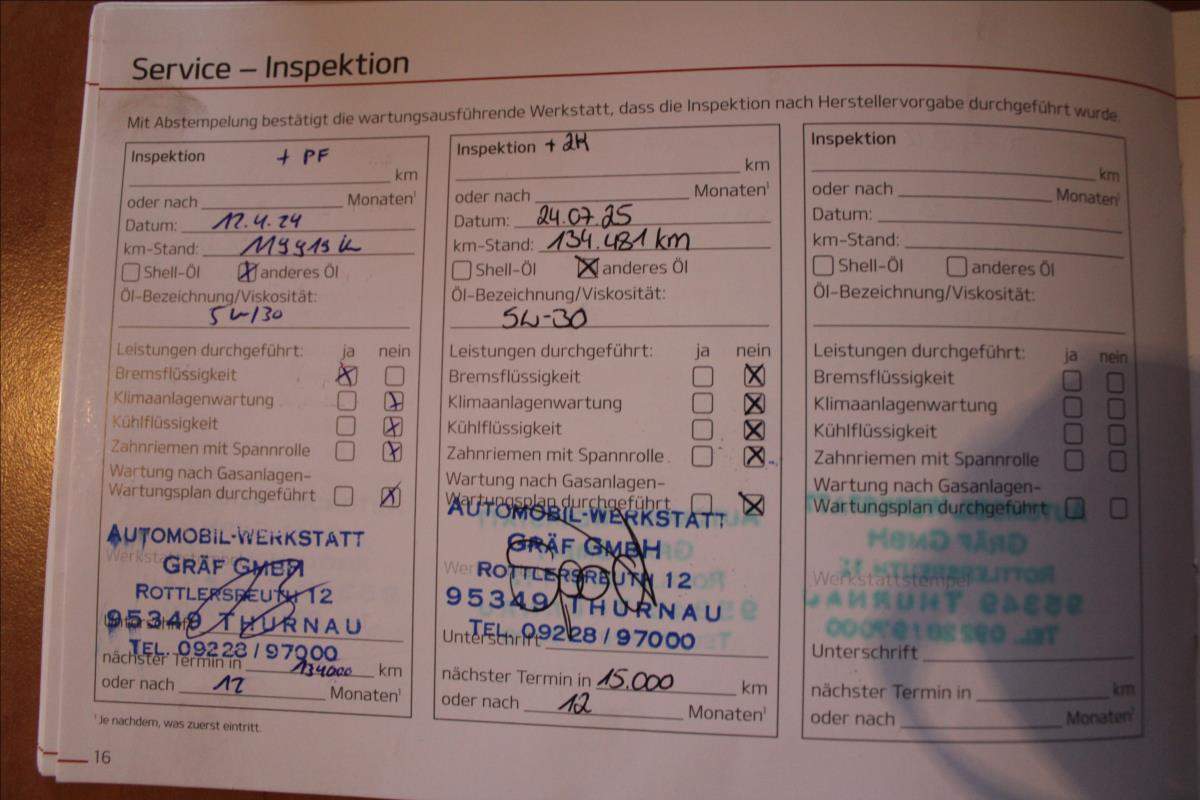 Service – Inspektion
Mit Abstempelung bestätigt die wartungsausführende Werkstatt, dass die Inspektion nach Herstellervorgabe durchgeführt wurde.
Inspektion + PF
km
oder nach Monaten¹
Datum: 12.4.24
km-Stand: 119913 k
Shell-Öl anderes Öl
Öl-Bezeichnung/Viskosität:
5W/30
Leistungen durchgeführt: ja nein
Bremsflüssigkeit
Klimaanlagenwartung
Kühlflüssigkeit
Zahnriemen mit Spannrolle
Wartung nach Gasanlagen-
Wartungsplan durchgeführt
AUTOMOBIL-WERKSTATT
GRÄF GMBH
ROTTLERSREUTH 12
95349 THURNAU
Unterschrift
TEL. 09228/97000
nächster Termin in 134000 km
oder nach 12 Monaten¹
¹Je nachdem, was zuerst eintritt.
16
Inspektion
km
oder nach Monaten¹
Datum: 24.07.25
km-Stand: 134.481 km
Shell-Öl anderes Öl
Öl-Bezeichnung/Viskosität:
5W-30
Leistungen durchgeführt: ja nein
Bremsflüssigkeit
Klimaanlagenwartung
Kühlflüssigkeit
Zahnriemen mit Spannrolle
Wartung nach Gasanlagen-
Wartungsplan durchgeführt
AUTOMOBIL-WERKSTATT
GRÄF GMBH
ROTTLERSREUTH 12
95349 THURNAU
TEL. 09228/97000
Unterschrift
nächster Termin in 15.000 km
oder nach 12 Monaten¹
Inspektion
km
oder nach Monaten¹
Datum:
km-Stand:
Shell-Öl anderes Öl
Öl-Bezeichnung/Viskosität:
Leistungen durchgeführt: ja nein
Bremsflüssigkeit
Klimaanlagenwartung
Kühlflüssigkeit
Zahnriemen mit Spannrolle
Wartung nach Gasanlagen-
Wartungsplan durchgeführt
Werkstattstempel
Unterschrift
nächster Termin in km
oder nach Monaten¹